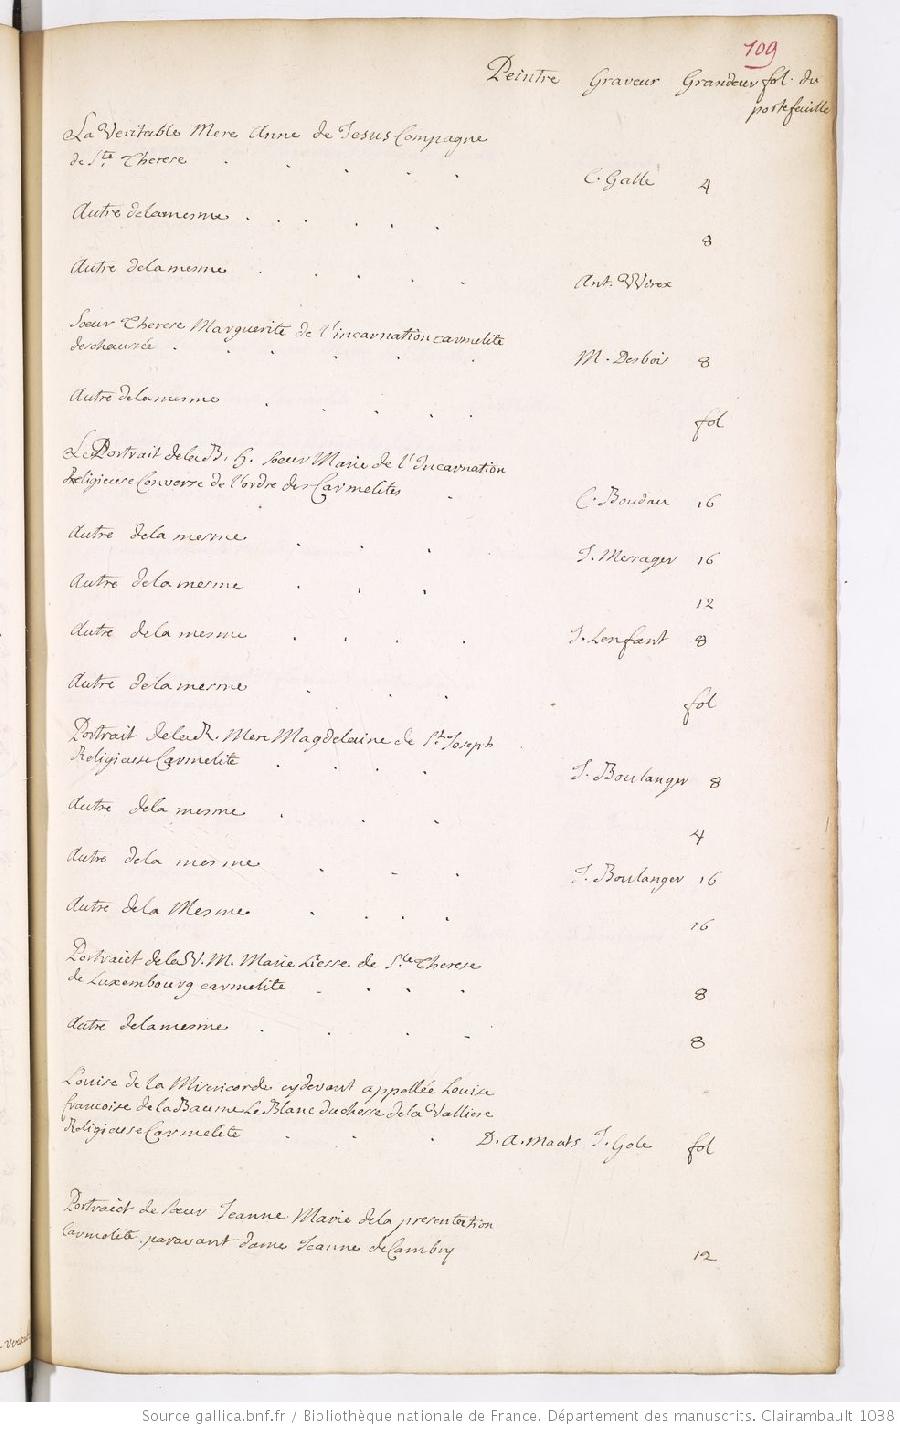 109
Peintre Graveur Grandeur fol. du
portefeuille
La Veritable Mere Anne de Jesus Compagne
de Ste Therese
C. Galle 4
Autre de la mesme
8
Autre de la mesme
Ant. Wirex
Soeur Therese Marguerite de l'incarnation carmelite
deschaussée
M. Desbois 8
Autre de la mesme
fol
Le Portrait de la B. H. soeur Marie de l'Incarnation
Religieuse Converse de l'ordre des Carmelites
C. Boudan 16
Autre de la mesme
J. Messager 16
Autre de la mesme
12
Autre de la mesme J. Lenfant 8
Autre de la mesme
fol
Portrait de la R. Mere Magdelaine de St Joseph
Religieuse Carmelite
J. Boulanger 8
Autre de la mesme
4
Autre de la mesme
J. Boulanger 16
Autre de la Mesme
16
Portraict de la V. M. Marie Liesse de Ste Therese
de Luxembourg carmelite
8
Autre de la mesme
8
Louise de la Misericorde cydevant appellée Louise
francoise de la Baume Le Blanc duchesse de la Valliere
Religieuse Carmelite D. A. Maats J. Gole fol
Portraict de soeur Jeanne Marie de la presentation
Carmelite paravant dame Jeanne de Cambry
12
Source gallica.bnf.fr / Bibliothèque nationale de France. Département des manuscrits. Clairambault 1038